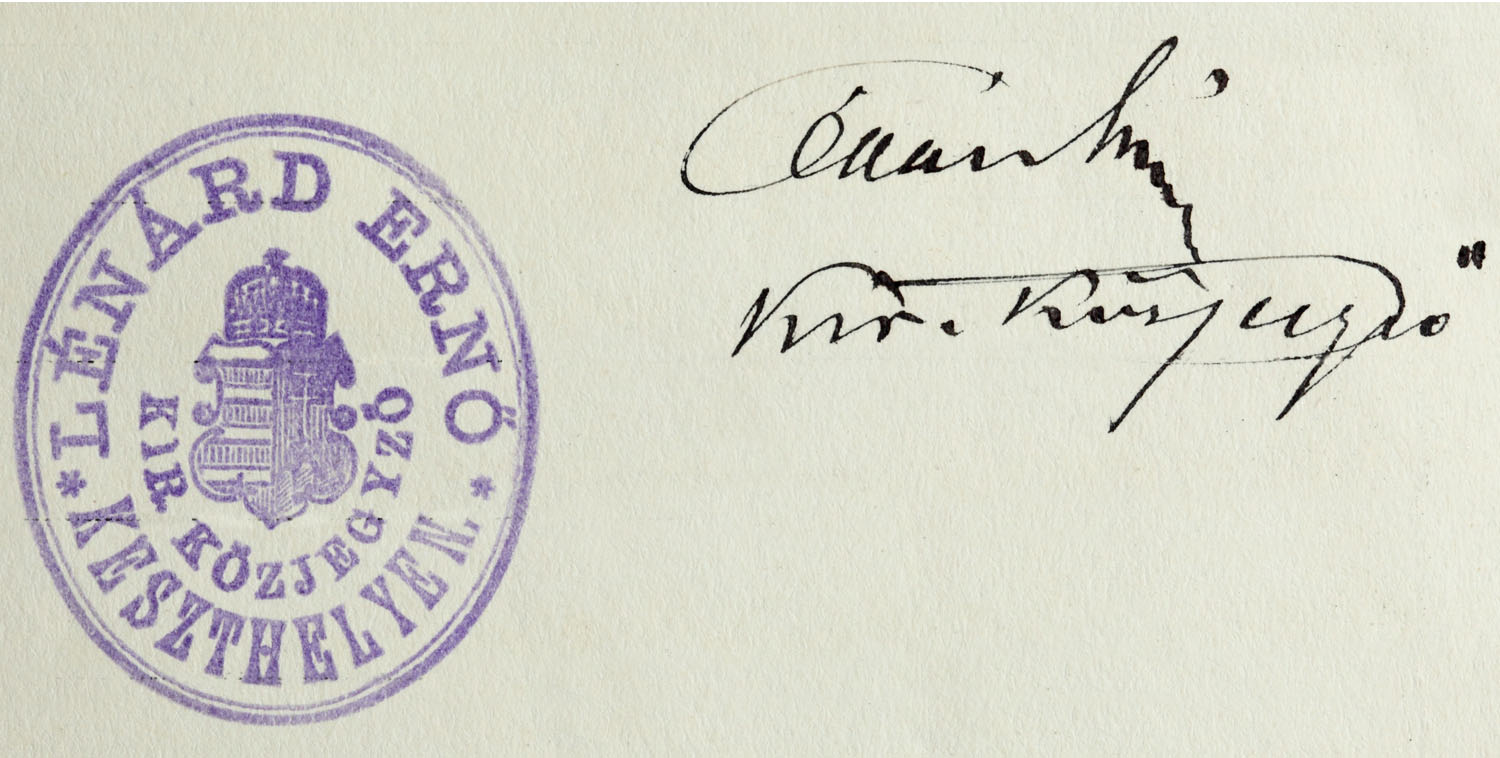 LÉNÁRD ERNŐ
KIR. KÖZJEGYZŐ
* KESZTHELYEN. *
kir. közjegyző